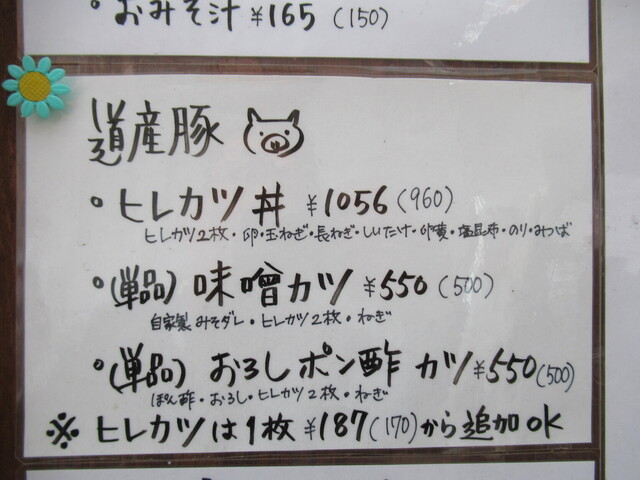 おみそ汁 ¥165 (150)
道産豚
• ヒレカツ丼 ¥1056(960)
ヒレカツ2枚・卵・玉ねぎ・長ねぎ・しいたけ・卵黄・塩昆布・のり・みつば
• (単品) 味噌カツ ¥550 (500)
自家製みそダレ・ヒレカツ2枚・ねぎ
• (単品) おろしポン酢カツ ¥550(500)
ぽん酢・おろし・ヒレカツ2枚・ねぎ
※ ヒレカツは1枚 ¥187(170)から追加OK